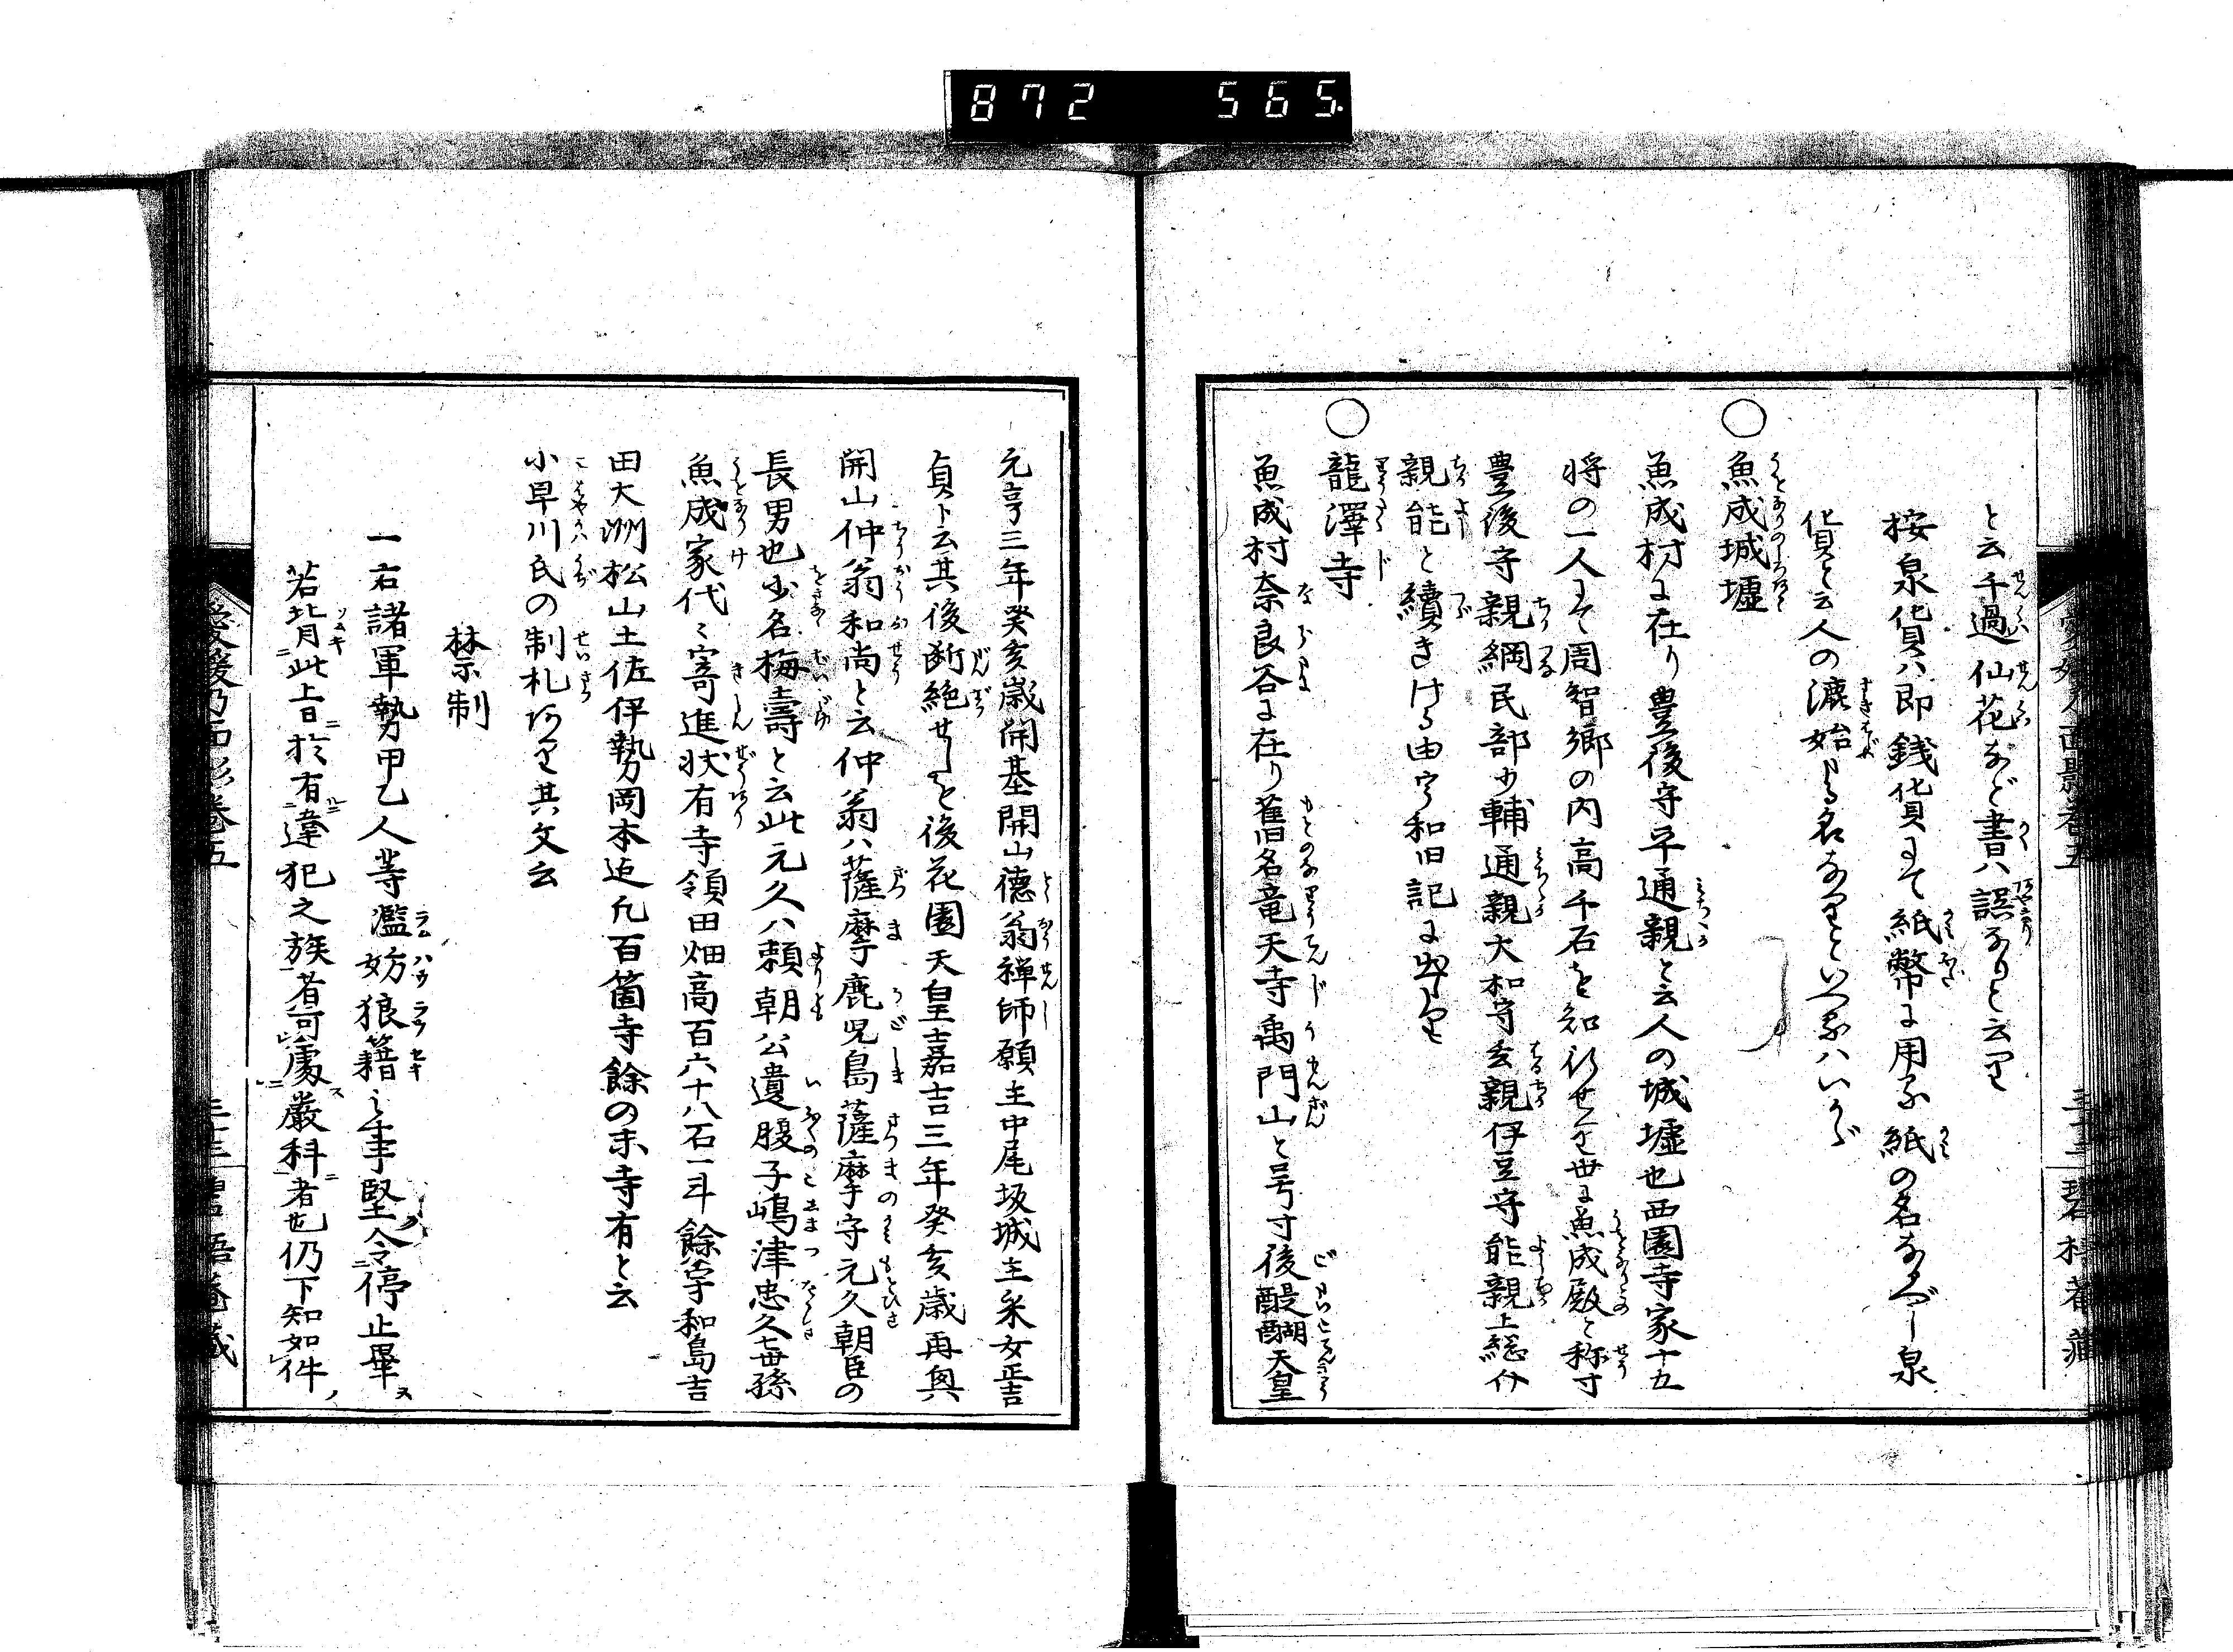 872 565
と云千過仙花など書ハ誤なりと云り
桉泉貨ハ即銭貨にて紙幣に用る紙の名なるべし泉
貨と云人の漉始る名なりといへるハいかゞ
○魚成城墟
魚成村に在り豊後守平通親と云人の城墟也西園寺家十五
将の一人にて周智郷の内高千石を知行せり世に魚成殿と称す
豊後守親綱民部少輔通親大和守玄親伊豆守能親上総介
親能と續きける由宇和旧記に出せり
○龍澤寺
魚成村奈良谷に在り舊名竜天寺禹門山と号す後醍醐天皇
元亨三年癸亥歳開基開山徳翁禅師願主中尾坂城主采女正吉
貞ト云其後断絶せしを後花園天皇嘉吉三年癸亥歳再興
開山仲翁和尚と云仲翁ハ薩摩鹿児島薩摩守元久朝臣の
長男也少名梅壽と云此元久ハ頼朝公遺腹子嶋津忠久七世孫
魚成家代々寄進状有寺領田畑高百六十八石一斗餘宇和島吉
田大洲松山土佐伊勢岡本迄凡百箇寺餘の末寺有と云
小早川氏の制札あり其文云
禁制
一右諸軍勢甲乙人等濫妨狼籍之事堅令停止畢
若背此旨於有違犯之族者可處嚴科者也仍下知如件